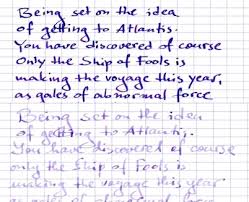 Being set on the idea
of getting to Atlantis.
You have discovered of course
Only the Ship of Fools is
making the voyage this year,
as gales of abnormal force
Being set on the idea
of getting to Atlantis,
You have discovered of course
only the Ship of Fools is
making the voyage this year
as gales of abnormal force